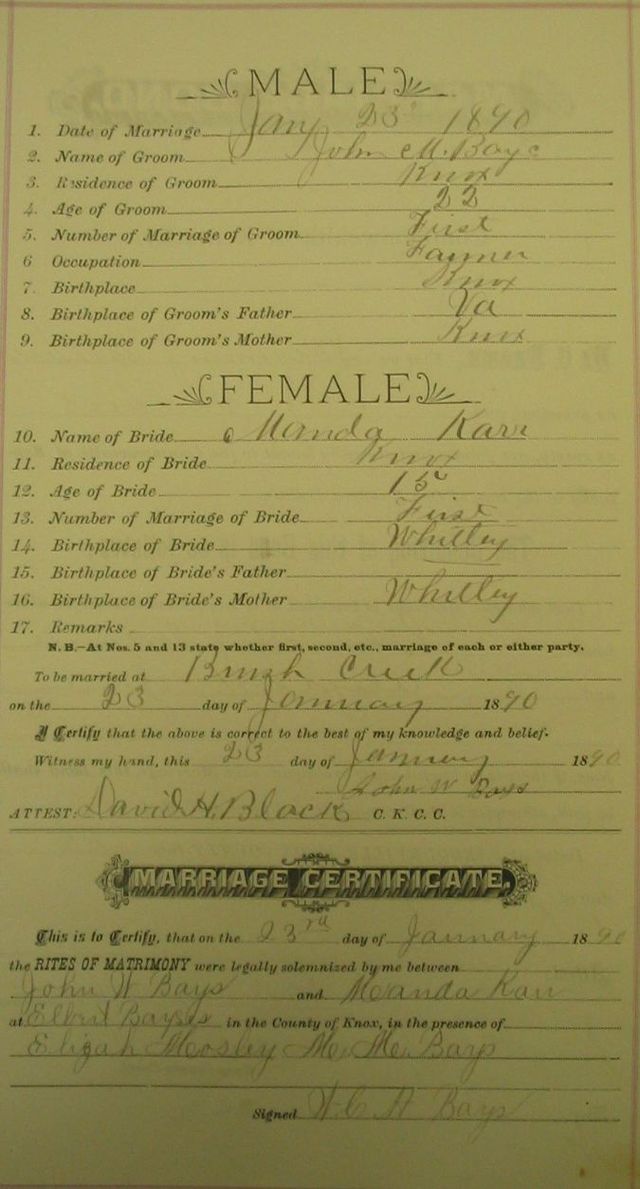 MALE
1. Date of Marriage Jany 23 1890
2. Name of Groom John M. Bays
3. Residence of Groom Knox
4. Age of Groom 22
5. Number of Marriage of Groom First
6 Occupation Farmer
7. Birthplace Knox
8. Birthplace of Groom's Father Va
9. Birthplace of Groom's Mother Knox
FEMALE
10. Name of Bride Manda Karr
11. Residence of Bride Knox
12. Age of Bride 15
13. Number of Marriage of Bride First
14. Birthplace of Bride Whitley
15. Birthplace of Bride's Father
16. Birthplace of Bride's Mother Whitley
17. Remarks
N. B.—At Nos. 5 and 13 state whether first, second, etc., marriage of each or either party.
To be married at Brush Creek
on the 23 day of January 1890
I Certify that the above is correct to the best of my knowledge and belief.
Witness my hand, this 23 day of January 1890
John W Bays
ATTEST: David H. Black C. K. C. C.
MARRIAGE CERTIFICATE.
This is to Certify, that on the 23rd day of January 1890
the RITES OF MATRIMONY were legally solemnized by me between
John W Bays and Manda Karr
at Elbert Bayses in the County of Knox, in the presence of
Elijah Mosley Mc. Mc. Bays
Signed W C A Bays